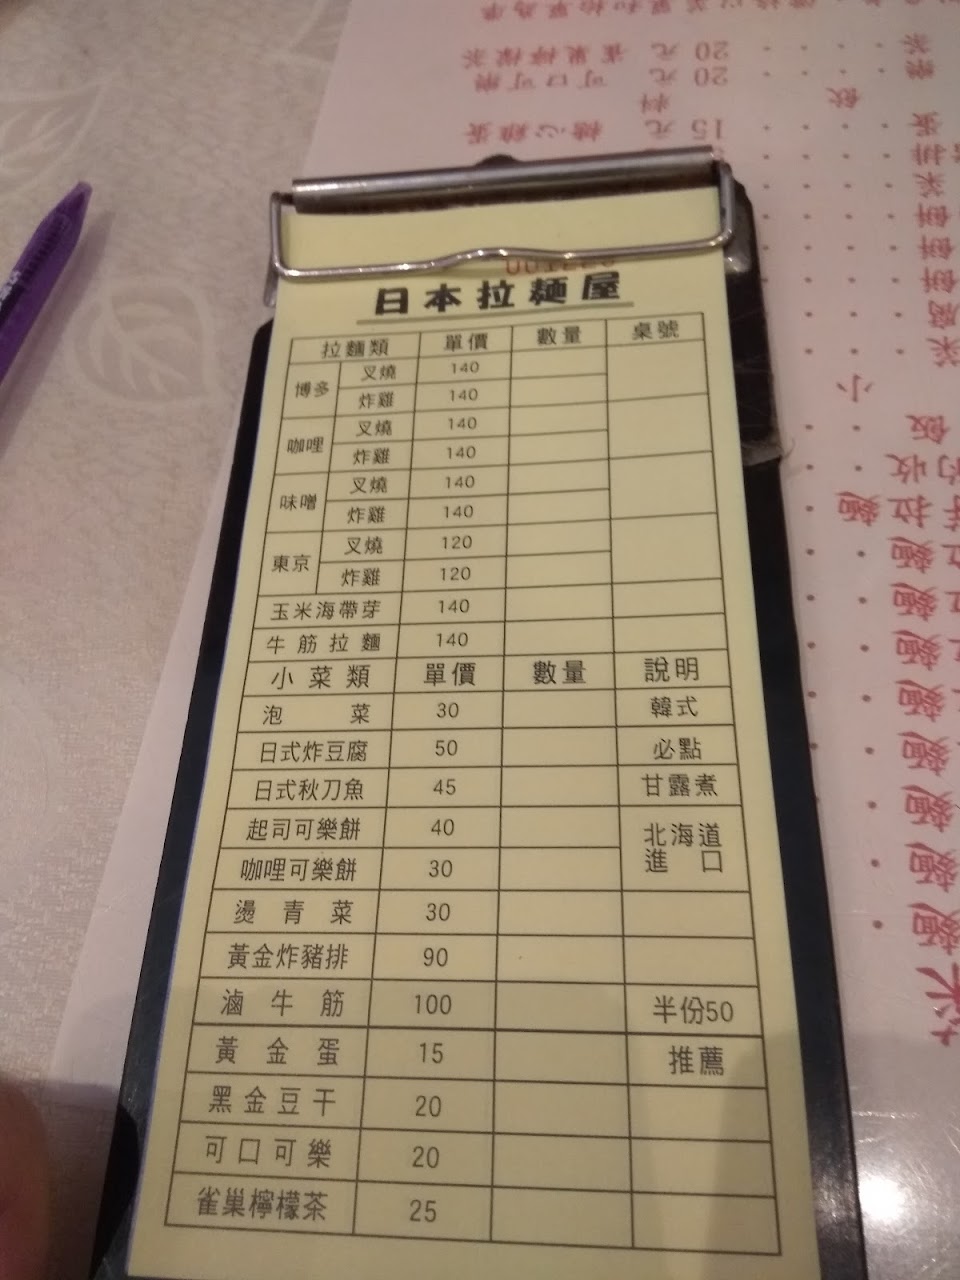 日本拉麵屋
拉麵類 單價 數量 桌號
博多 叉燒 140
炸雞 140
咖哩 叉燒 140
炸雞 140
味噌 叉燒 140
炸雞 140
東京 叉燒 120
炸雞 120
玉米海帶芽 140
牛筋拉麵 140
小菜類 單價 數量 說明
泡菜 30 韓式
日式炸豆腐 50 必點
日式秋刀魚 45 甘露煮
起司可樂餅 40 北海道
咖哩可樂餅 30 進口
燙青菜 30
黃金炸豬排 90
滷牛筋 100 半份50
黃金蛋 15 推薦
黑金豆干 20
可口可樂 20
雀巢檸檬茶 25
糖心雞蛋 15元
飲料
可口可樂 20元
雀巢檸檬茶 20元